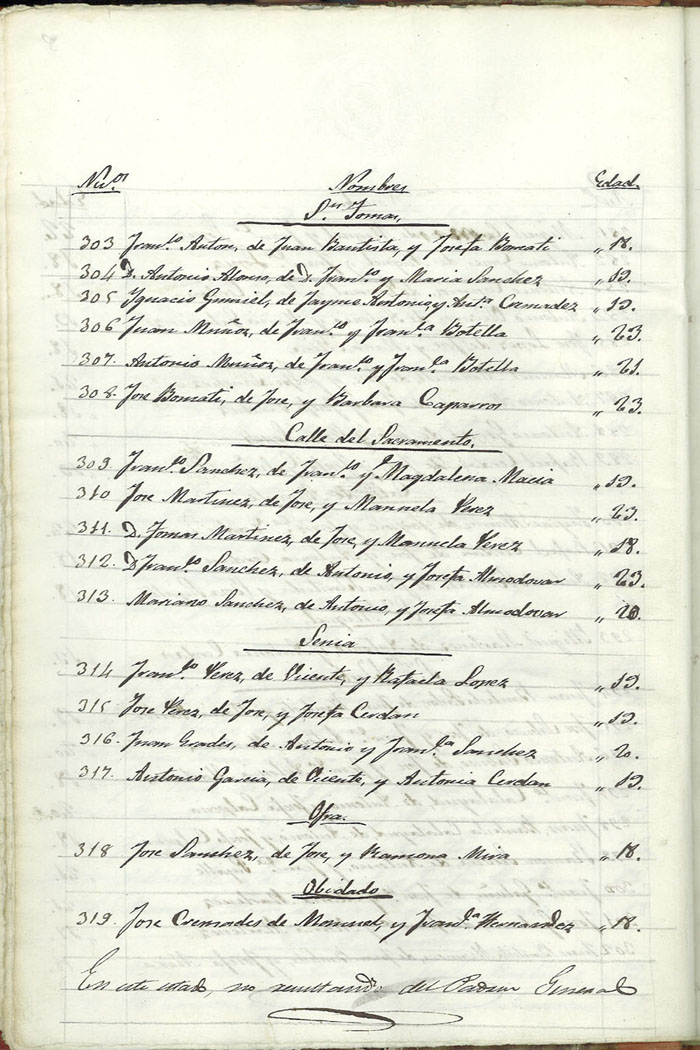 Nu.os Nombres Edad.
S.n Tomas,
303 Fran.co Anton, de Juan Bautista, y Josefa Boncati „ 18.
304 D. Antonio Alonso, de D. Fran.co y Maria Sanchez „ 19.
305 Ygnacio Gumiel, de Jayme Antonio, y Ant.a Cremadez „ 19.
306 Juan Muñoz, de Fran.co y Fran.ca Botella „ 23.
307. Antonio Muñoz, de Fran.co y Fran.ca Botella „ 21.
308. Jose Boncati, de Jose, y Barbara Caparros „ 23.
Calle del Sacramento.
309. Fran.co Sanchez, de Fran.co y Magdalena Macia „ 19.
310 Jose Martinez, de Jose, y Manuela Perez „ 23.
311. D. Tomas Martinez, de Jose, y Manuela Perez „ 18.
312. D. Fran.co Sanchez, de Antonio, y Josefa Almodovar „ 23.
313. Mariano Sanchez, de Antonio, y Josefa Almodovar „ 20.
Senia
314 Fran.co Perez, de Vicente, y Rafaela Lopez „ 19.
315 Jose Perez, de Jose, y Josefa Cerdan „ 19.
316. Juan Grades, de Antonio y Fran.ca Sanchez „ 20.
317. Antonio Garcia, de Vicente, y Antonia Cerdan „ 19.
Ofra.
318 Jose Sanchez, de Jose, y Ramona Mira „ 18.
Obidado
319. Jose Cremades de Manuel, y Fran.ca Hernandez „ 18.
En este estado, no resultando del Padron General